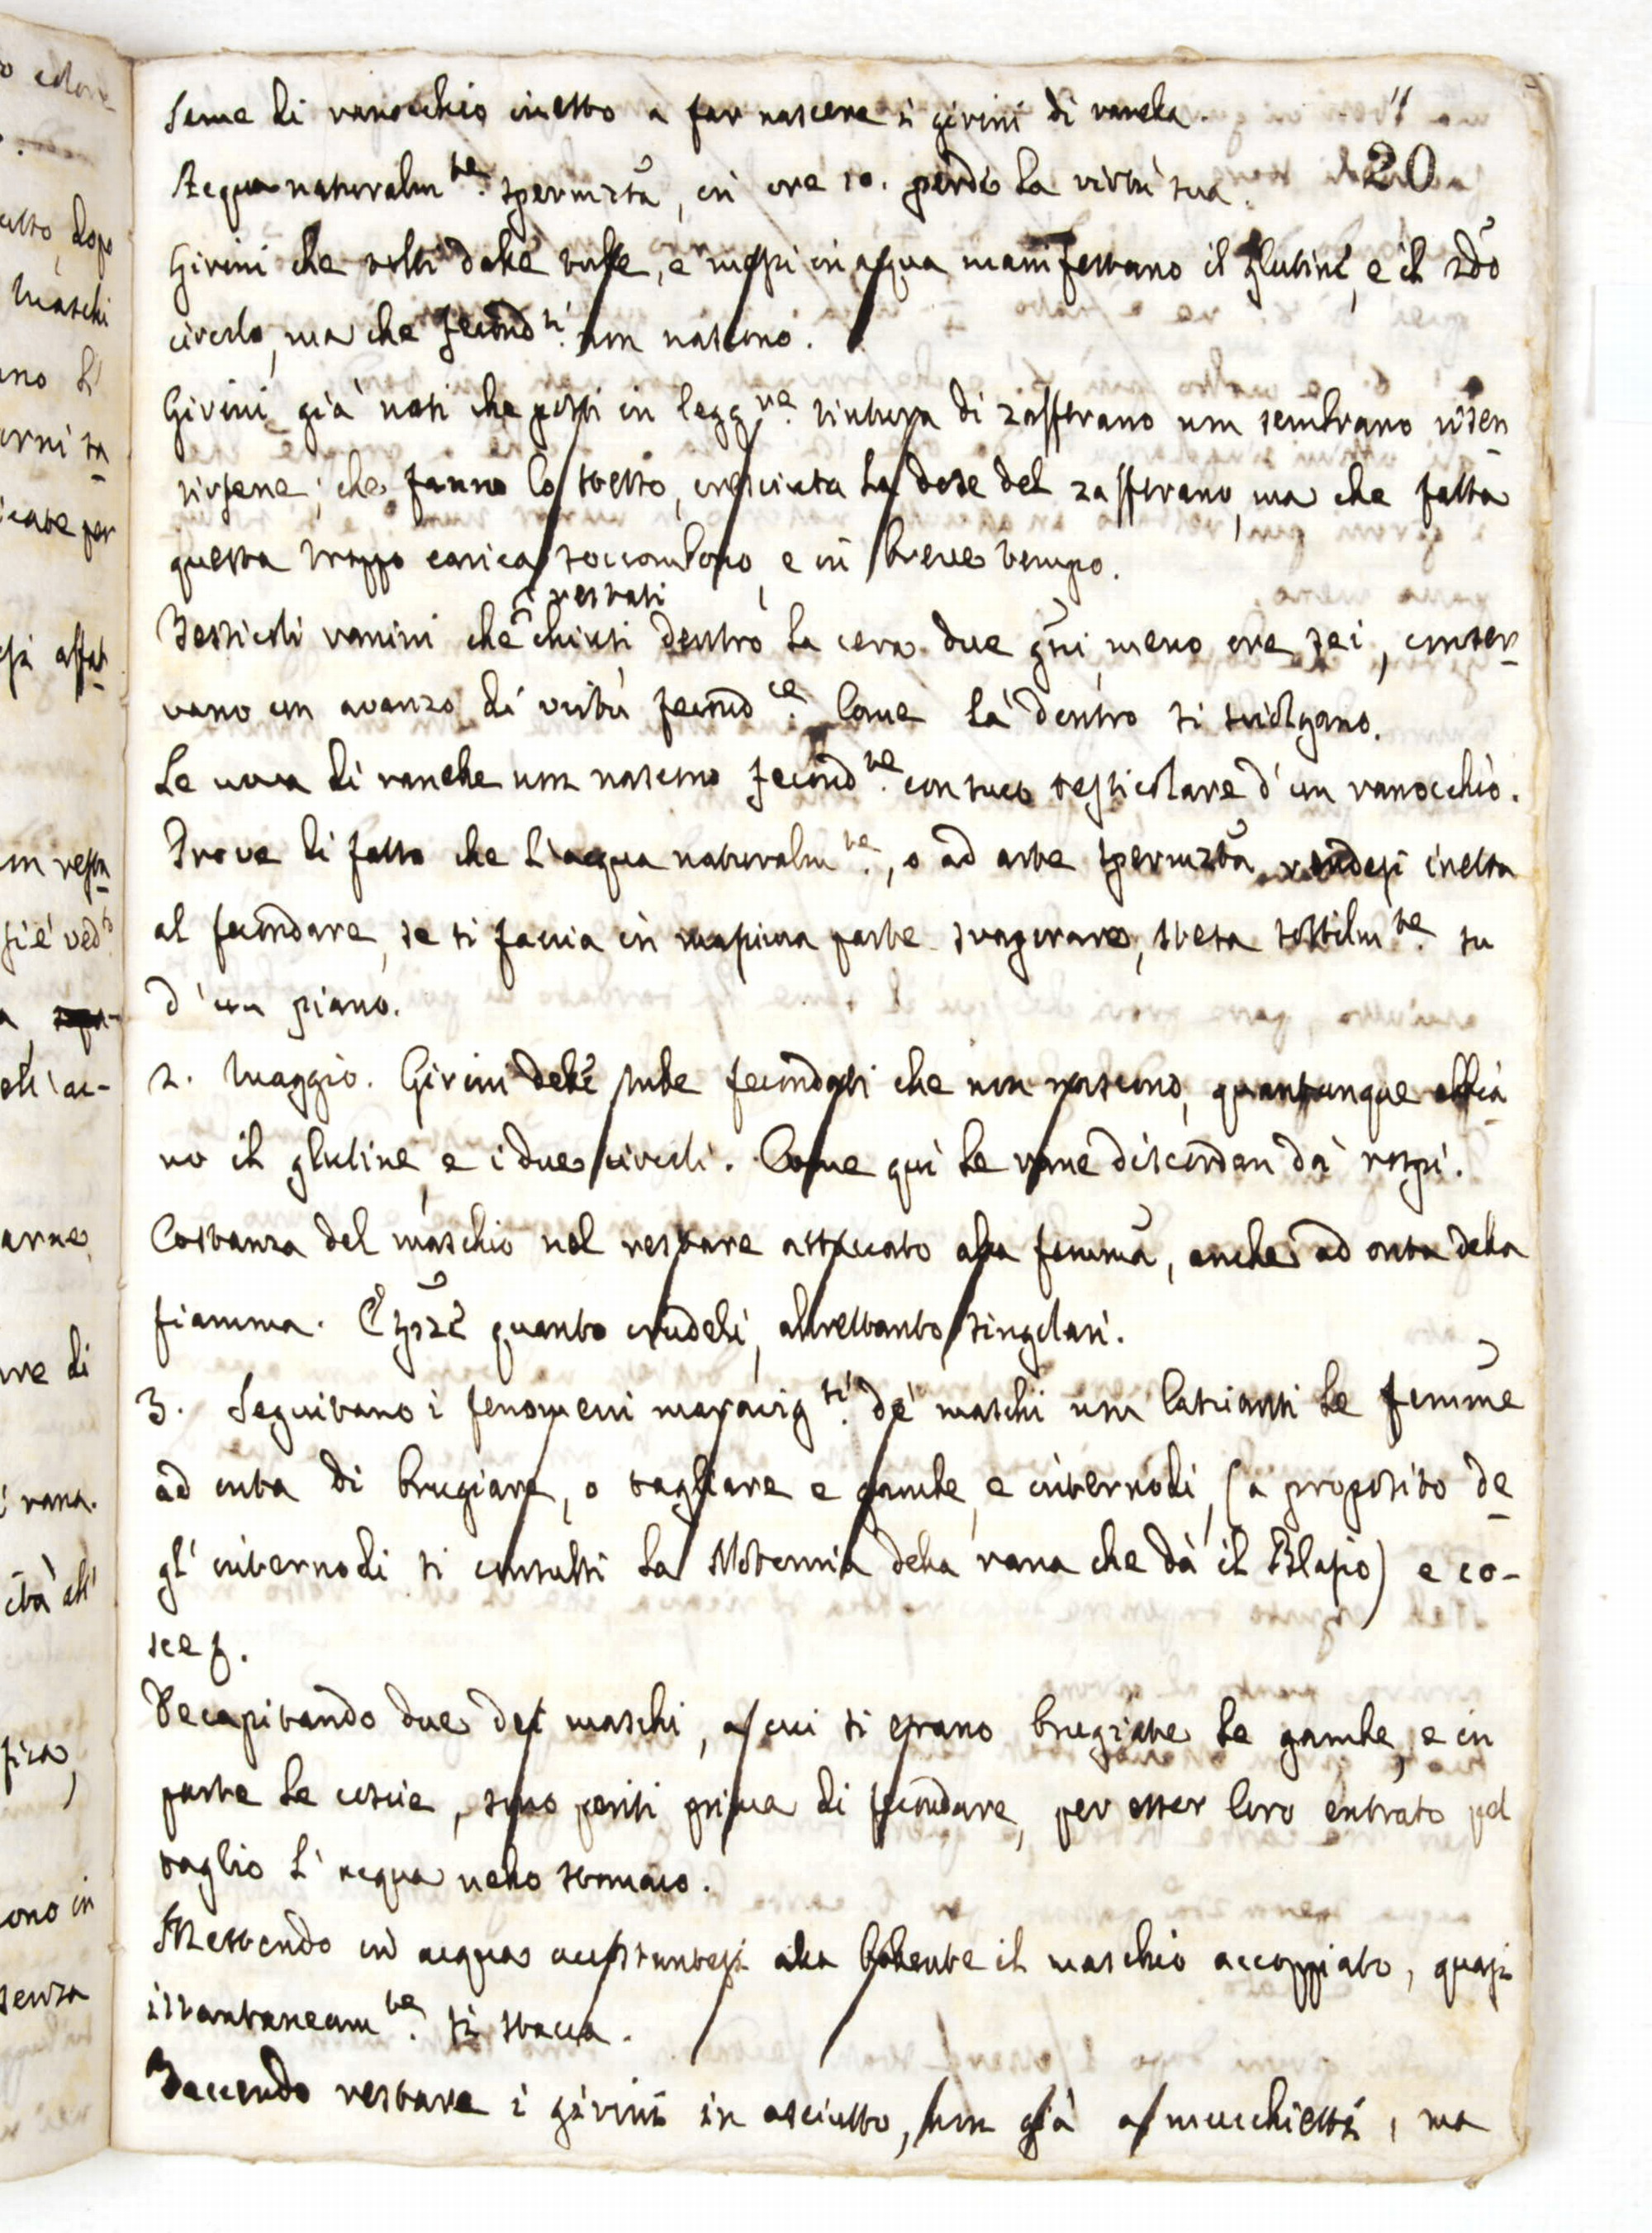 Seme di ranocchio inetto a far nascere i girini di ranela.
11
20
Acqua naturalm.te spermizta, in ore 10. perdè la virtù sua.
Girini che tolti dalle tube, e messi in acqua manifestano il glutine, e il 2do
circolo, ma che fecond.ti non nascono.
Girini già nati che posti in legg.re tintura di zafferano non sembrano risen-
tirsene; che fanno lo stesso, cresciuta la dose del zafferano, ma che fatta
questa troppo carica soccombono, e in breve tempo.
restati
Testicoli ranini che chiusi dentro la cera due gni, meno ore sei, conser-
vano un avanzo di virtù fecond.ce. Come là dentro si sciolgano.
Le uova di ranelle non nascono fecond.te con suco testicolare d'un ranocchio.
Prove di fatto che l'acqua naturalm.te, o ad arte spermizta rendesi inetta
al fecondare, se si faccia in massima parte svaporare, stesa sottilm.te su
d'un piano.
2. Maggio. Girini delle tube fecondati che non nascono, quantunque abbia-
no il glutine, e i due circoli. Come qui le rane discordan da' rospi.
Costanza del maschio nel restare attaccato alla femma, anche ad onta della
fiamma. Espze quanto crudeli, altrettanto singolari.
3. Seguitano i fenomeni maravig.si de' maschi non lascianti le femme
ad onta di brugiare, o tagliare e gambe, e internodi, (a proposito de-
gl'internodi si consulti la Notomia della rana che dà il Blasio) e co-
sce z.
Decapitando due dei maschi, a cui si erano brugiate le gambe, e in
parte le coscie, sono periti prima di fecondare, per esser loro entrato pel
taglio l'acqua nello stomaco.
Mettendo in acqua accostantesi alla bollente il maschio accoppiato, quasi
istantaneam.te si stacca.
Facendo restare i girini in asciutto, non già a mucchietti, ma